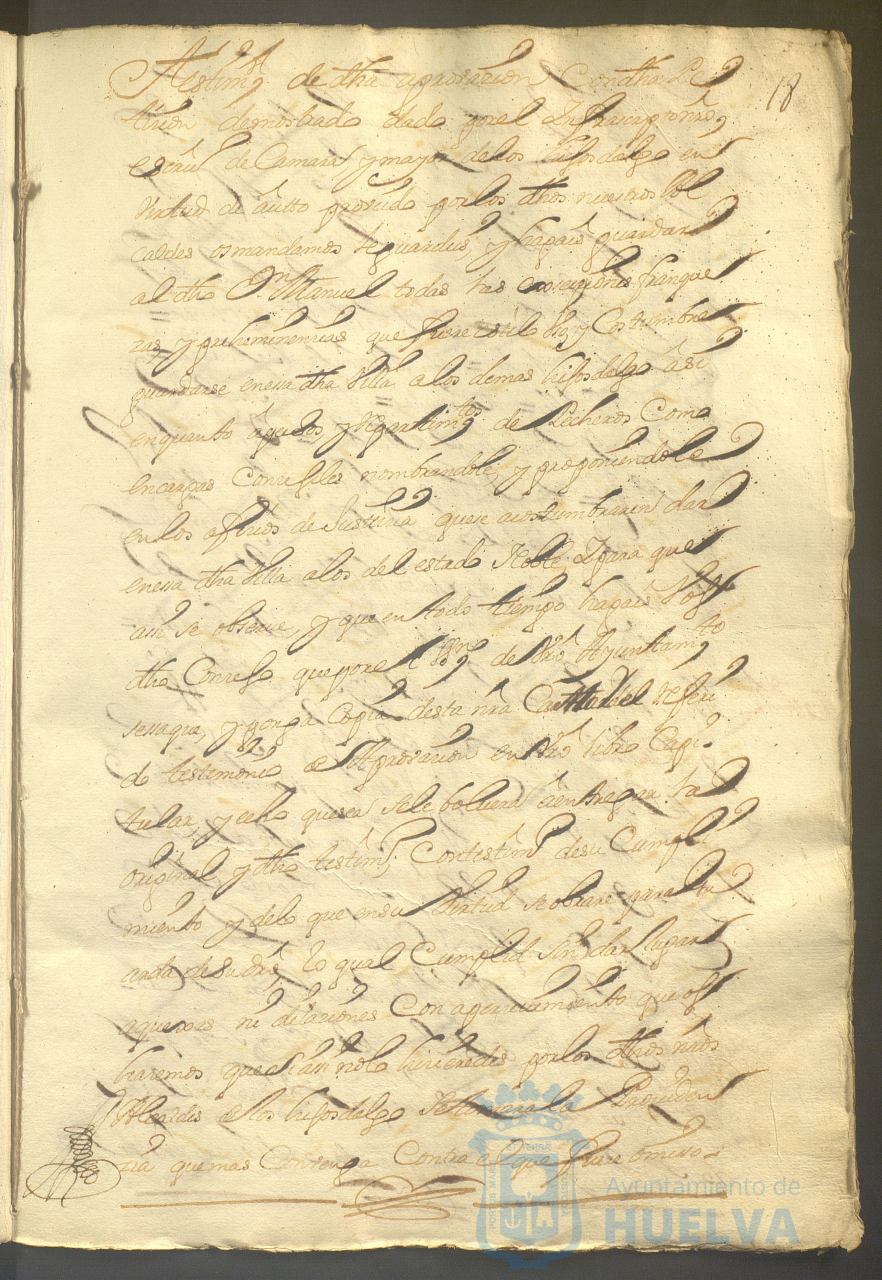 18
Testimº de dha aprovazion Con dha Pe
tizion demostrado dado por el Infrascripto nrô
escriv de Camara, y mayor de los hijosdalgo en
virtud de autto proveido por los dhos nuestros Al
caldes os mandamos le guardeis y hagais guardar
al dho Dn Manuel todas las exempciones franque
zas y preheminencias que fuere estilo uso y Costumbre
guardarse en essa dha Villa a los demas hijosdalgo asi
en quanto a pechos y repartimtos de Pecheros Como
en cargas Conzejiles nombrandole, y proponiendole
en los ofizios de Justizia que se acostumbraren dar
en essa dha Villa a los del estado Noble, Y para que
asi se observe, y que en todo tiempo hagais Vos
dho Conzejo que por el essno de vrô Ayuntamto
se saque, y ponga Copia desta nra Carta del referi
do testimonio de Aprovazion en vrô libro Capi
tular, y echo que sea se le bolverá a entregar la
original y dho testimº, Con testimº de su Cumpli
miento y de lo que en su Virtud se obrare para
de su dro lo qual Cumplid sin dar lugar
a quexas ni dilaziones Con apercivimiento que os
hazemos que si asi no lo hiziereedes por los dhos nrôs
Alcaldes de los hijosdalgo se tomara la Providen
zia que mas Convenga Contra el que fuere omiso
Ayuntamiento de
HUELVA